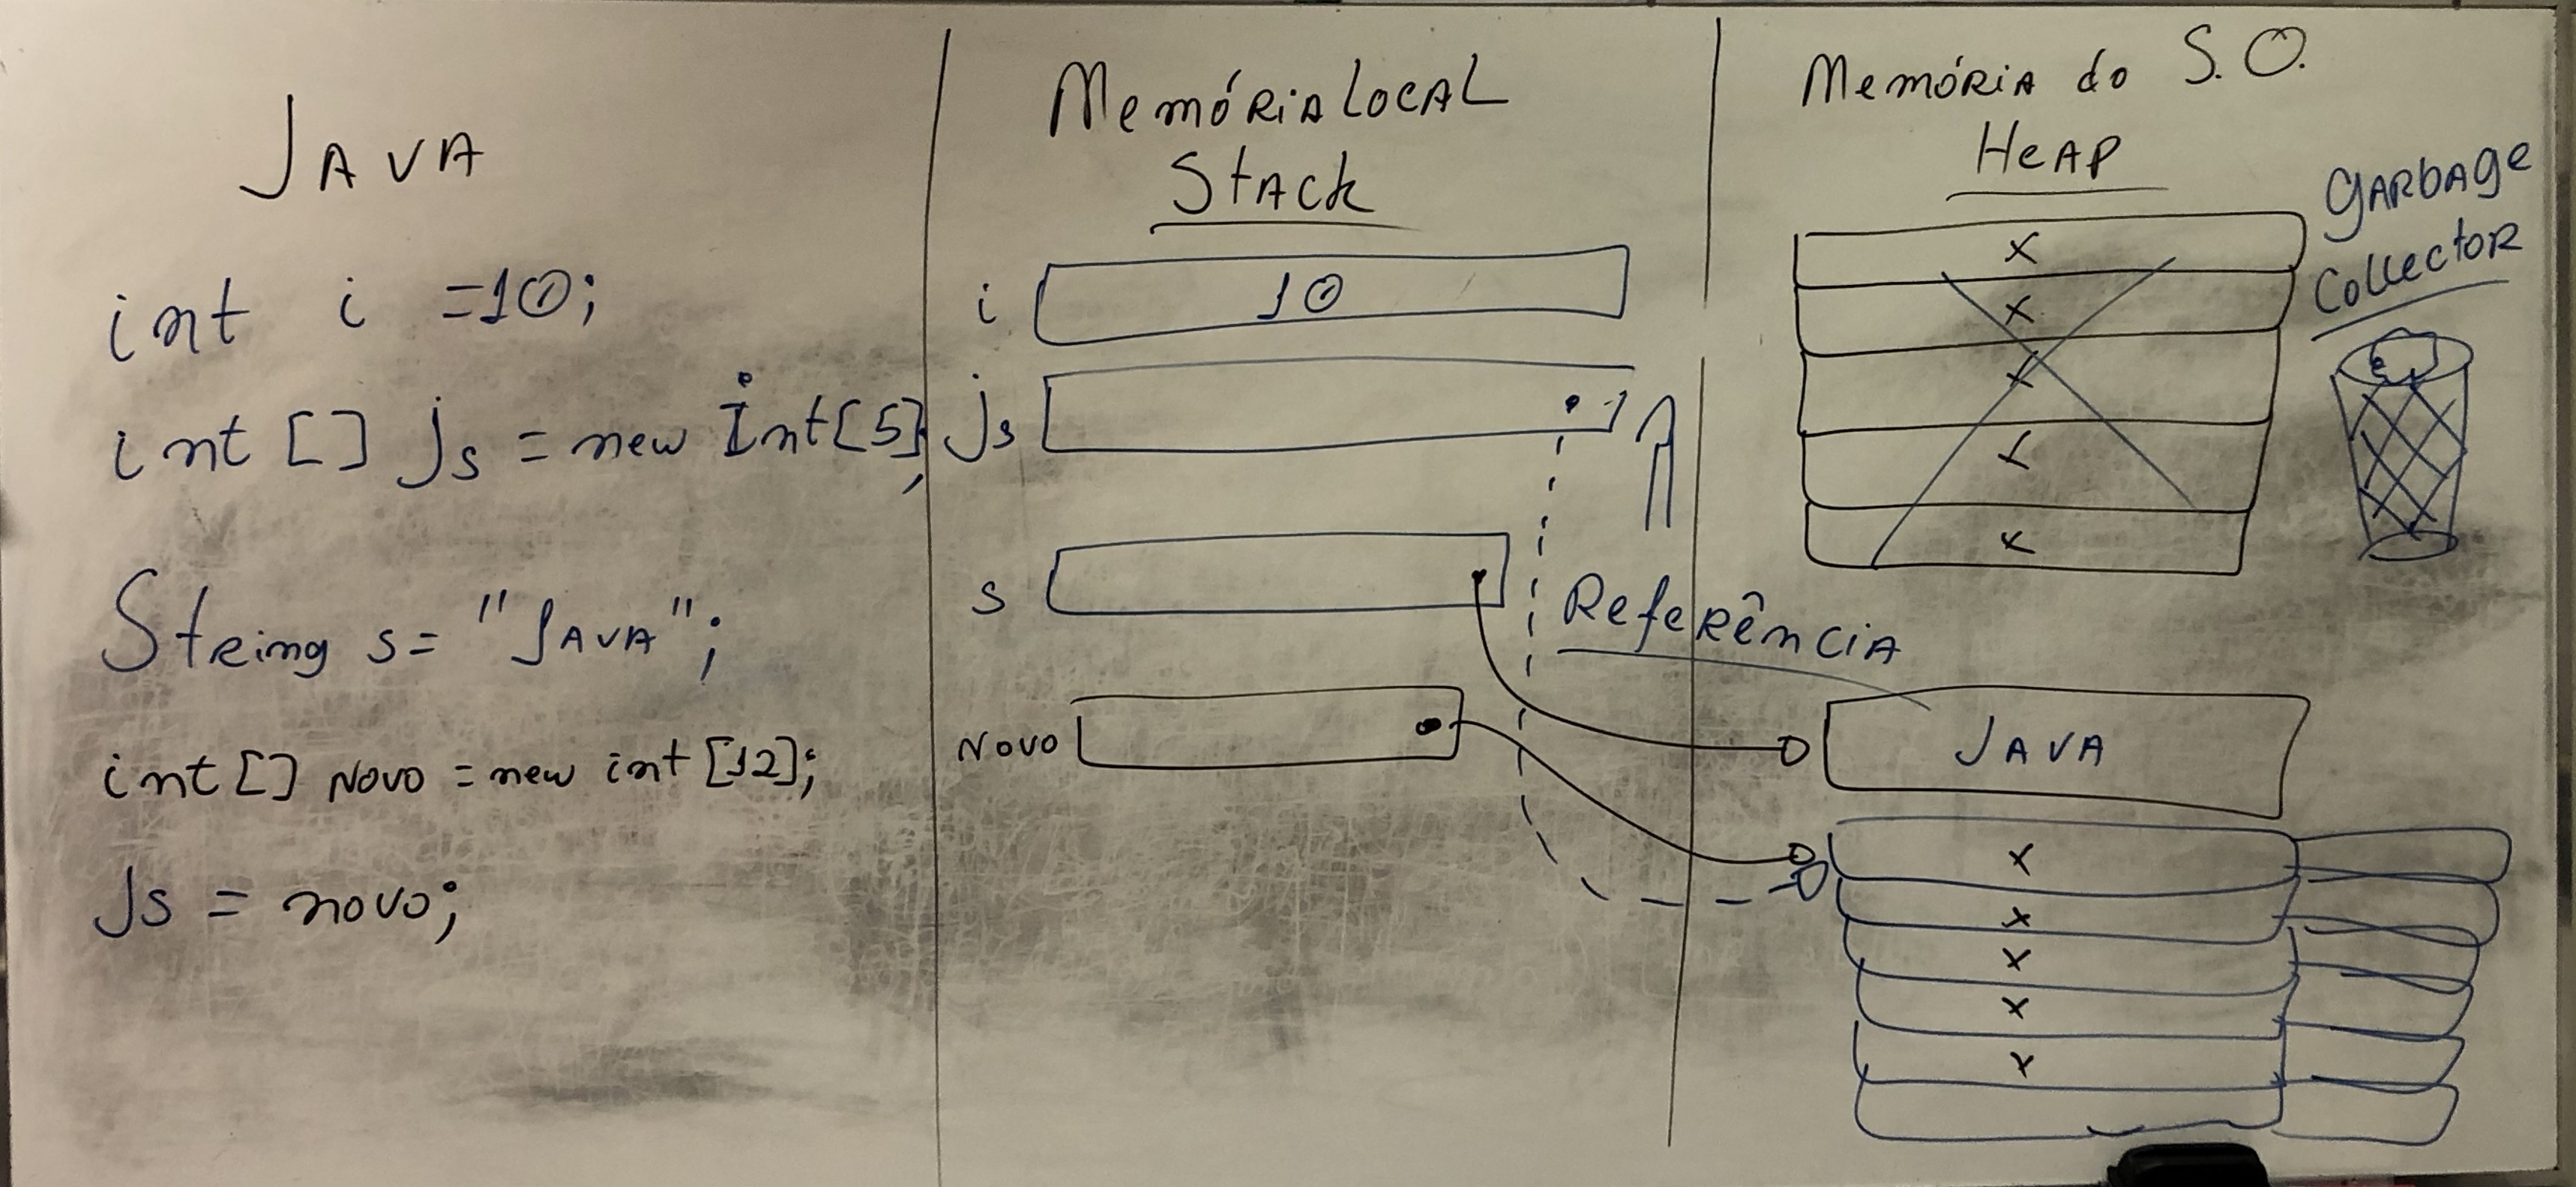 JAVA
int i =10;
int [] js = new Int[5];
String s= "JAVA";
int[] NOVO = new int [12];
Js = novo;
Memória Local
Stack
i 10
js
s
NOVO
Referência
Memória do S.O.
HeAP
x
x
x
x
x
GARbAge
Collector
JAVA
x
x
x
x
x